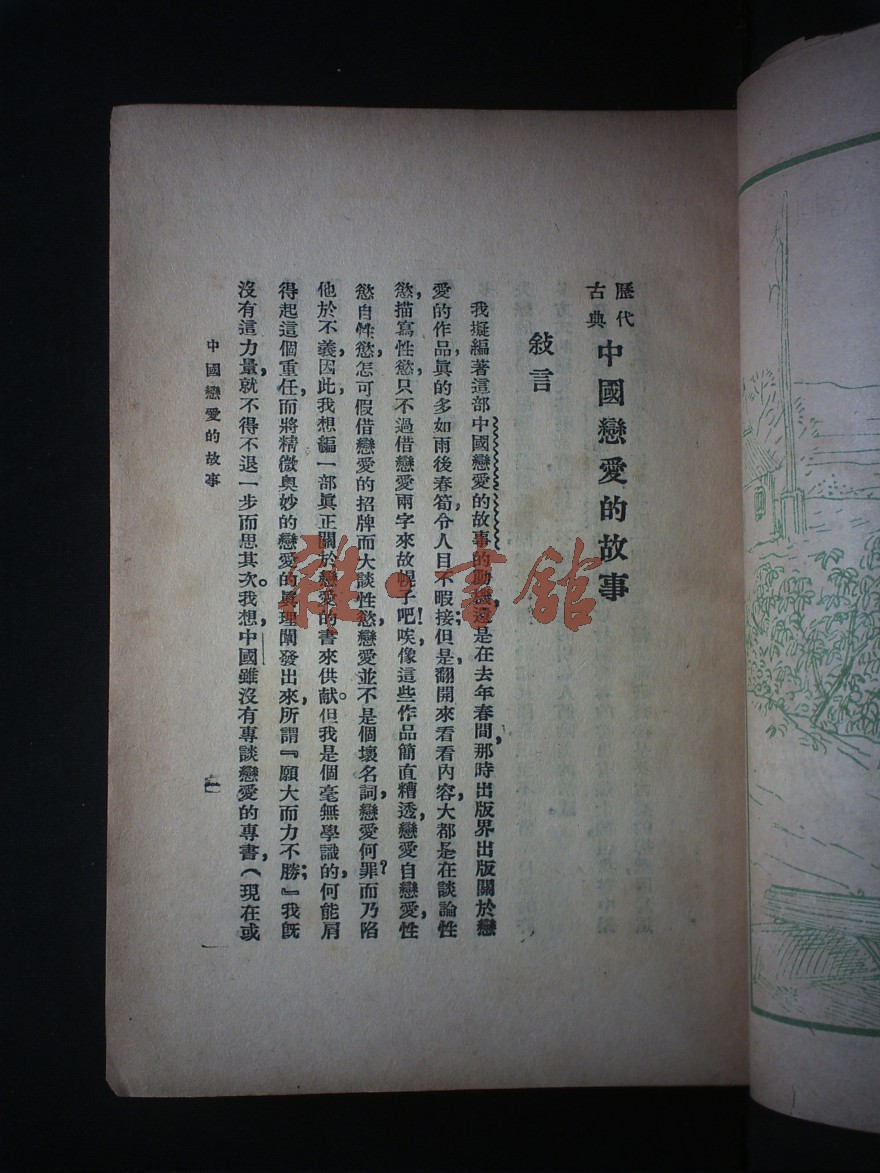 歷代
古典
中國戀愛的故事
敍言
我擬編著這部中國戀愛的故事的動機,還是在去年春間,那時出版界出版關於戀
愛的作品,眞的多如雨後春筍,令人目不暇接;但是翻開來看看內容,大都是在談論性
慾,描寫性慾,只不過借戀愛兩字來故幌子吧!唉,像這些作品簡直糟透,戀愛自戀愛,性
慾自性慾,怎可假借戀愛的招牌而大談性慾,戀愛並不是個壞名詞,戀愛何罪?而乃陷
他於不義,因此,我想編一部眞正關於戀愛的書來供献。但我是個毫無學識的,何能肩
得起這個重任,而將精微奥妙的戀愛的眞理闡發出來,所謂『願大而力不勝;』我旣
沒有這力量,就不得不退一步而思其次。我想,中國雖沒有專談戀愛的專書,(現在或
中國戀愛的故事
一
雜·書館